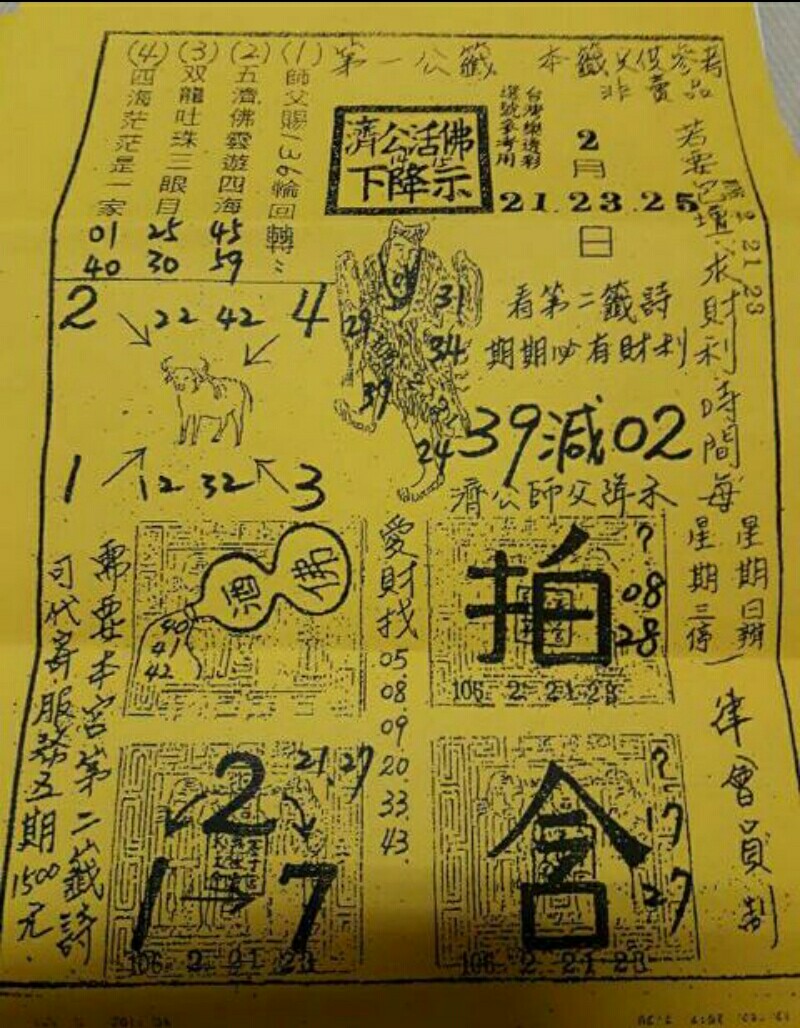 第一公籤
本籤只供參考
非賣品
(1)師父賜136輪回轉
(2)五濟佛雲遊四海
(3)双龍吐珠三眼目
(4)四海茫茫是一家
45
59
25
30
01
40
濟公活佛
下降示
台灣樂透彩
選號參考用
2
月
21.23.25
日
看第二籤詩
期期必有財利
39減02
濟公師父降示
2
22 42
4
1
12 32
3
31
29
34
39
24
酒
佛
40
41
42
愛財找
05.
08
09
20
33
43
拍
?
08
28
106. 2. 21 23
2
1
7
21.27
106 2 21 23
含
?
17
27
106 2 21 23
求財利時間每
星期日辦
星期三停
律會員制
需要本宮第二籤詩
可代寄服務五期1500元.